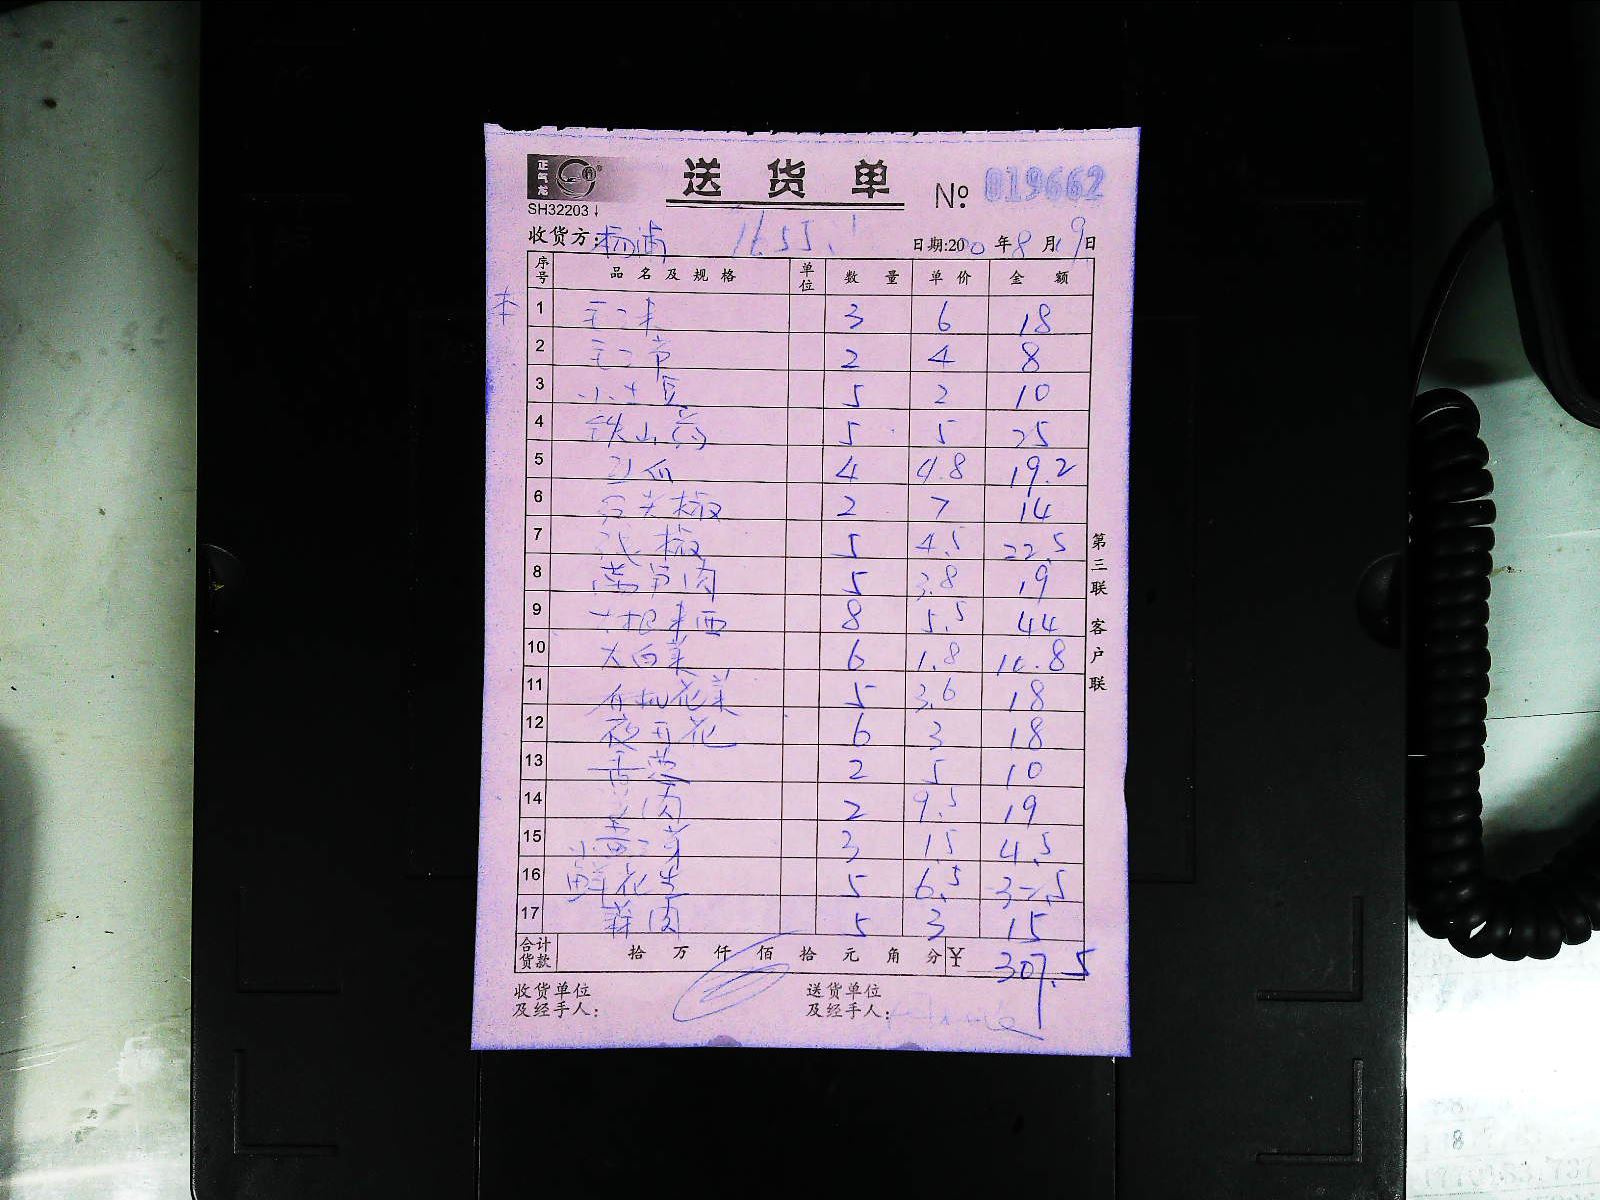 正气龙
送货单
№ 019662
SH32203
收货方: 杨浦 1655.1 日期:20 20 年 8 月 19 日
序号 品名及规格 单位 数量 单价 金额
本
1 毛二未 3 6 18
2 毛二节 2 4 8
3 小土豆 5 2 10
4 铁山药 5 5 25
5 4 4.8 19.2
6 尖椒 2 7 14
7 椒 5 4.5 22.5
8 莴笋肉 5 3.8 19
9 8 5.5 44
10 大白菜 6 1.8 10.8
11 有机花菜 5 3.6 18
12 夜开花 6 3 18
13 香葱 2 5 10
14 肉 2 9.5 19
15 小黄二芽 3 1.5 4.5
16 鲜花生 5 6.5 32.5
17 蒜肉 5 3 15
合计货款 拾 万 仟 佰 拾 元 角 分 ¥ 307.5
收货单位及经手人:
送货单位及经手人:
第三联 客户联